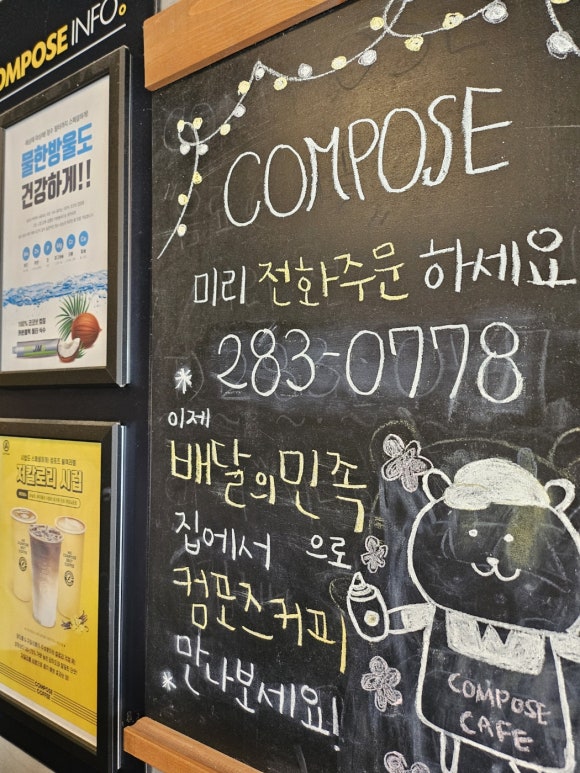 COMPOSE INFO.
물한방울도
건강하게!!
100% 코코넛 껍질
저칼로리 시럽
COMPOSE
COFFEE
COMPOSE
미리 전화주문 하세요
* 283-0778
이제
배달의민족
집에서 으로
컴포즈커피
* 만나보세요!
COMPOSE
CAFE